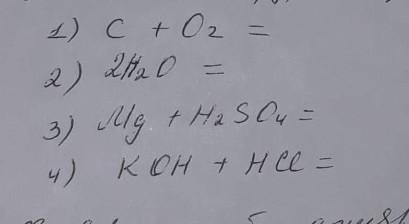 1) C + O₂ =
2) 2H₂O =
3) Mg + H₂SO₄ =
4) KOH + HCl =